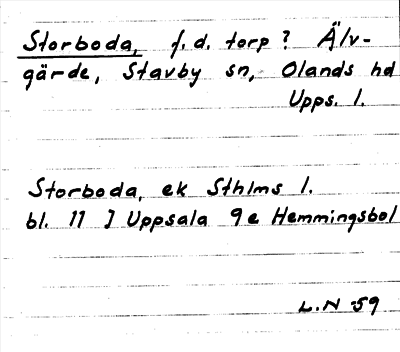 Storboda, f.d. torp? Älv-
gärde, Stavby sn, Olands hd
Upps. l.
Storboda, ek Sthlms l.
bl. 11 I Uppsala 9e Hemmingsbol
L.N -59